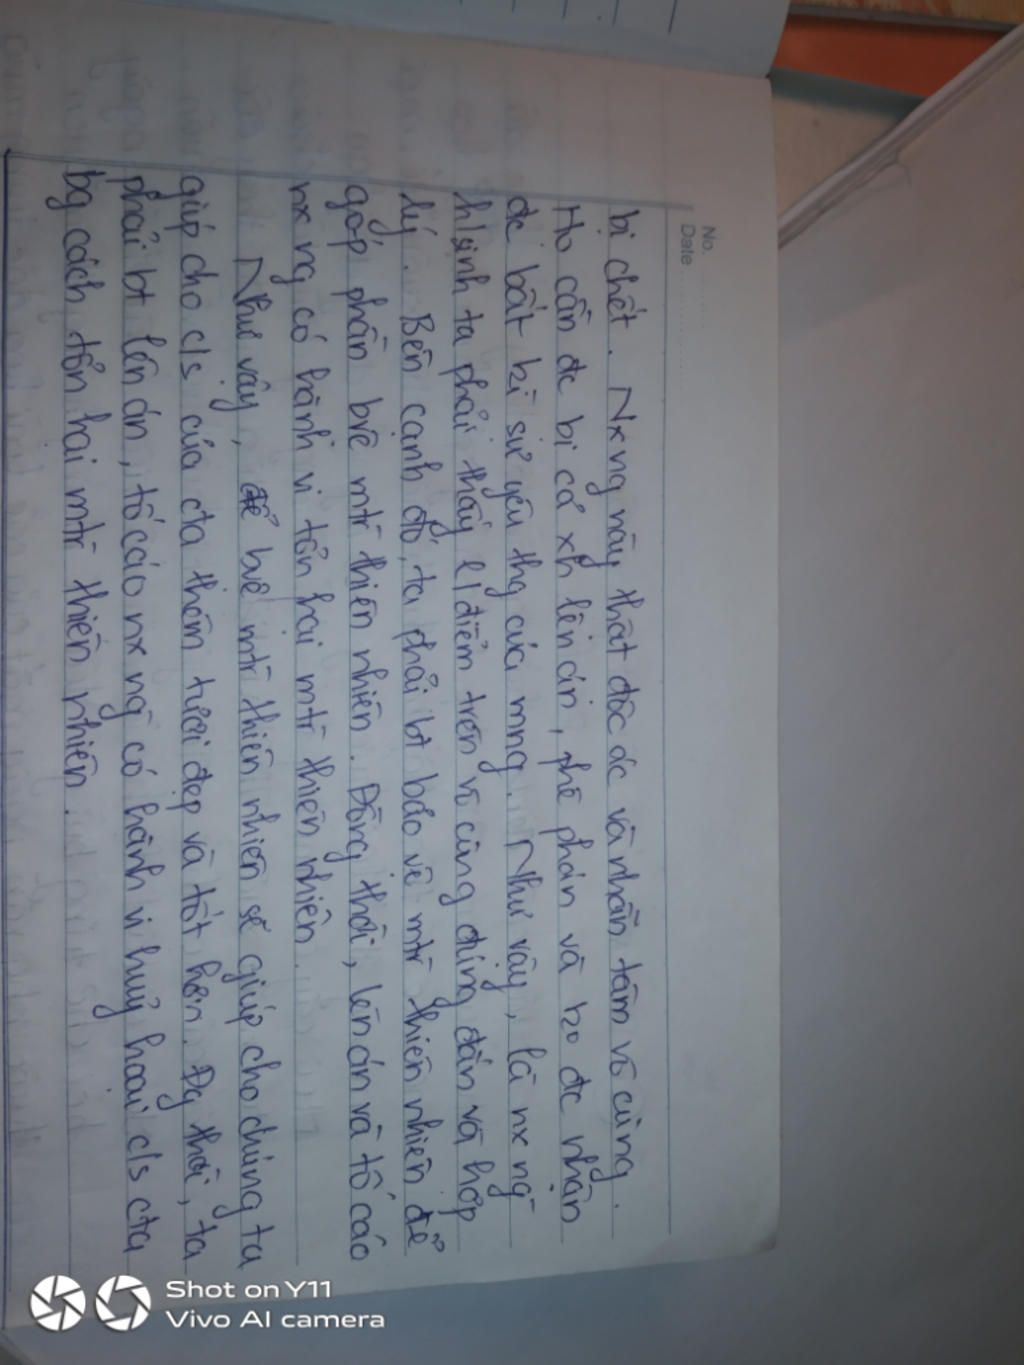 No.
Date
bị chết. Nx ng này thật độc ác và nhẫn tâm vô cùng.
Họ cần đc bị cả xh lên án, phê phán và ko đc nhận
đc bất kì sự yêu thg của mng. Như vậy, là nx ng
h/sinh ta phải thấy q/điểm trên vô cùng đúng đắn và hợp
lý. Bên cạnh đó, ta phải bt bảo vệ mtr thiên nhiên để
góp phần bvệ mtr thiên nhiên. Đồng thời, lên án và tố cáo
nx ng có hành vi tổn hại mtr thiên nhiên.
Như vậy, để bvệ mtr thiên nhiên sẽ giúp cho chúng ta
giúp cho c/s của cta thêm tươi đẹp và tốt hơn. Đg thời, ta
phải bt lên án, tố cáo nx ng có hành vi huỷ hoại c/s cta
bg cách tổn hại mtr thiên nhiên.
Shot on Y11
Vivo AI camera